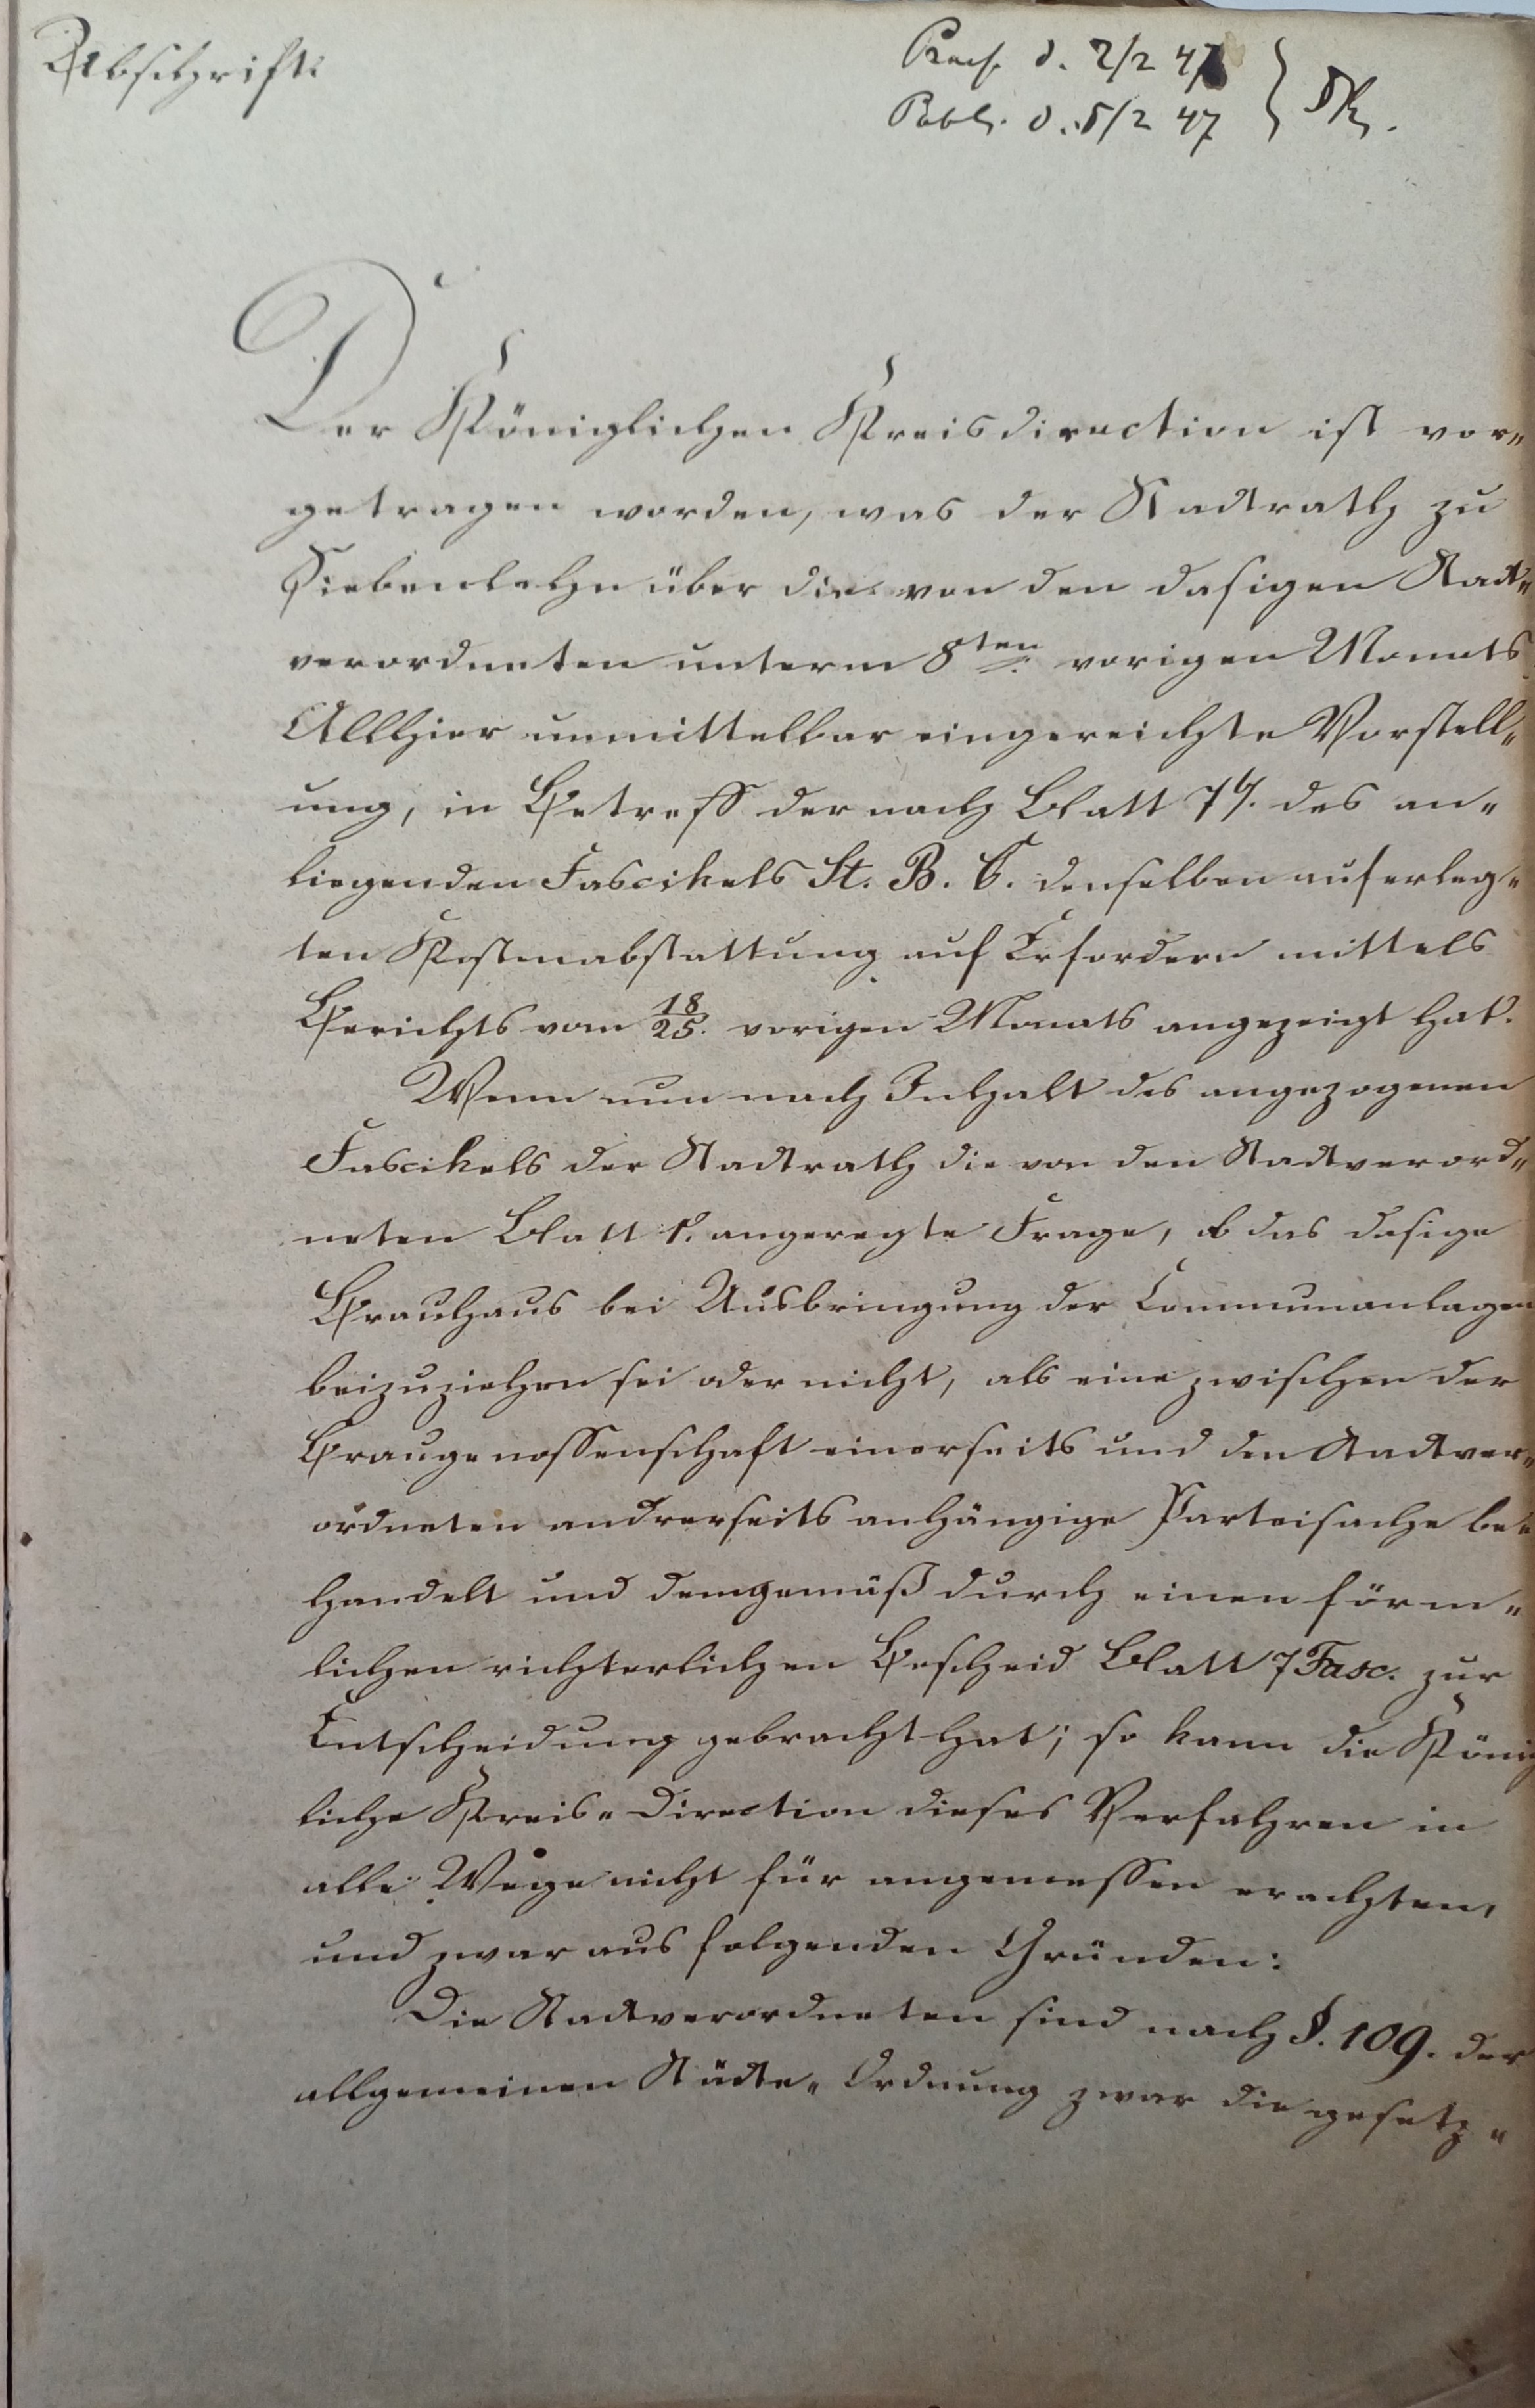 Abschrift.
Praes. d. 2/2 47
Publ. d. 5/2 47
Der Königlichen Kreisdirection ist vor„
getragen worden, was der Stadtrath zu
Siebenlehn über die von den dasigen Stadt„
verordneten unterm 8ten vorigen Monats
Allhier unmittelbar eingereichte Vorstell„
ung, in Betreff der nach Blatt 7b. des an„
liegenden Fascikels St. B. C. denselben auferleg„
ten Kostenabstattung auf Erfordern mittels
Berichts vom 18/25. vorigen Monats angezeigt hat.
Wenn nun nach Inhalt des angezogenen
Fascikels der Stadtrath die von den Stadtverord„
neten Blatt 1. angeregte Frage, ob das dasige
Brauhaus bei Ausbringung der Communanlagen
beizuziehen sei oder nicht, als eine zwischen der
Braugenossenschaft einerseits und den Stadtver„
ordneten andrerseits anhängige Parteisache be„
handelt und demgemäß durch einen förm„
lichen richterlichen Bescheid Blatt 7 Fasc. zur
Entscheidung gebracht hat; so kann die König
liche Kreis„Direction dieses Verfahren in
alle Wege nicht für angemessen erachten,
und zwar aus folgenden Gründen:
Die Stadtverordneten sind nach §. 109. der
allgemeinen Städte„Ordnung zwar die gesetz„